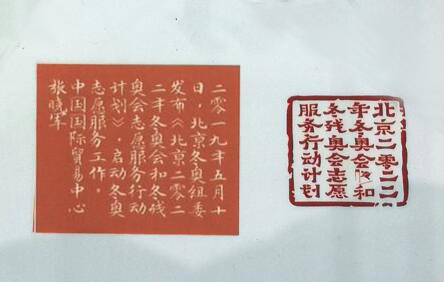 二零一九年五月十
日，北京冬奥组委
发布《北京二零二
二年冬奥会和冬残
奥会志愿服务行动
计划》，启动冬奥
志愿服务工作。
中国国际贸易中心
张晓军
北京二零二二
年冬奥会和
冬残奥会志愿
服务行动计划